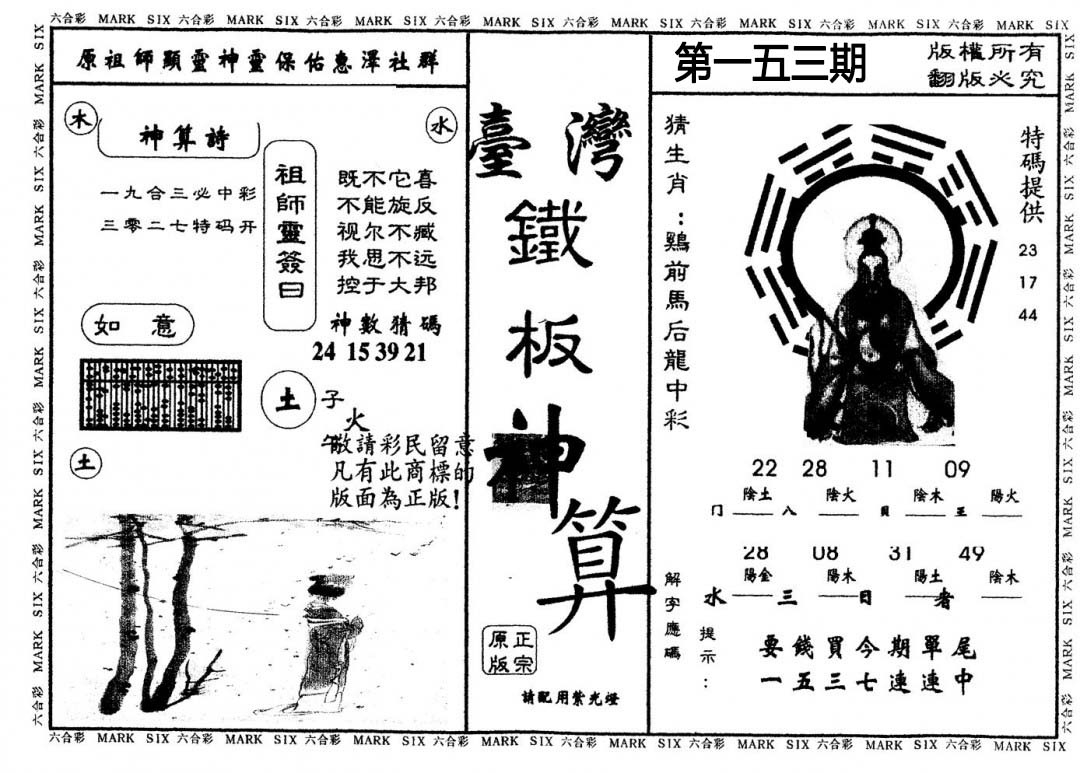 六合彩 MARK SIX 六合彩 MARK SIX 六合彩 MARK SIX 六合彩 MARK SIX 六合彩 MARK SIX 六合彩 MARK SIX 六合彩 MARK SIX 六合彩 MARK SIX
原祖師顯靈神靈保佑惠澤社群
木
神算詩
水
一九合三必中彩
三零二七特码开
祖師靈簽曰
既不它喜
不能旋反
视尔不臧
我思不远
控于大邦
如意
神數猜碼
24 15 39 21
土
子
火
午
敬請彩民留意
凡有此商標的
版面為正版!
土
臺灣
鐵
板
神
算
正宗
原版
請配用紫光燈
第一五三期
版權所有
翻版必究
猜生肖:鷄前馬后龍中彩
特碼提供
23
17
44
22 28 11 09
陰土 陰火 陰木 陽火
门 八 貝 王
28 08 31 49
陽金 陽木 陽土 陰木
水 三 日 者
解字應碼
提示:
要錢買今期單尾
一五三七連連中
六合彩 MARK SIX 六合彩 MARK SIX 六合彩 MARK SIX 六合彩 MARK SIX 六合彩 MARK SIX 六合彩 MARK SIX 六合彩 MARK SIX 六合彩 MARK SIX